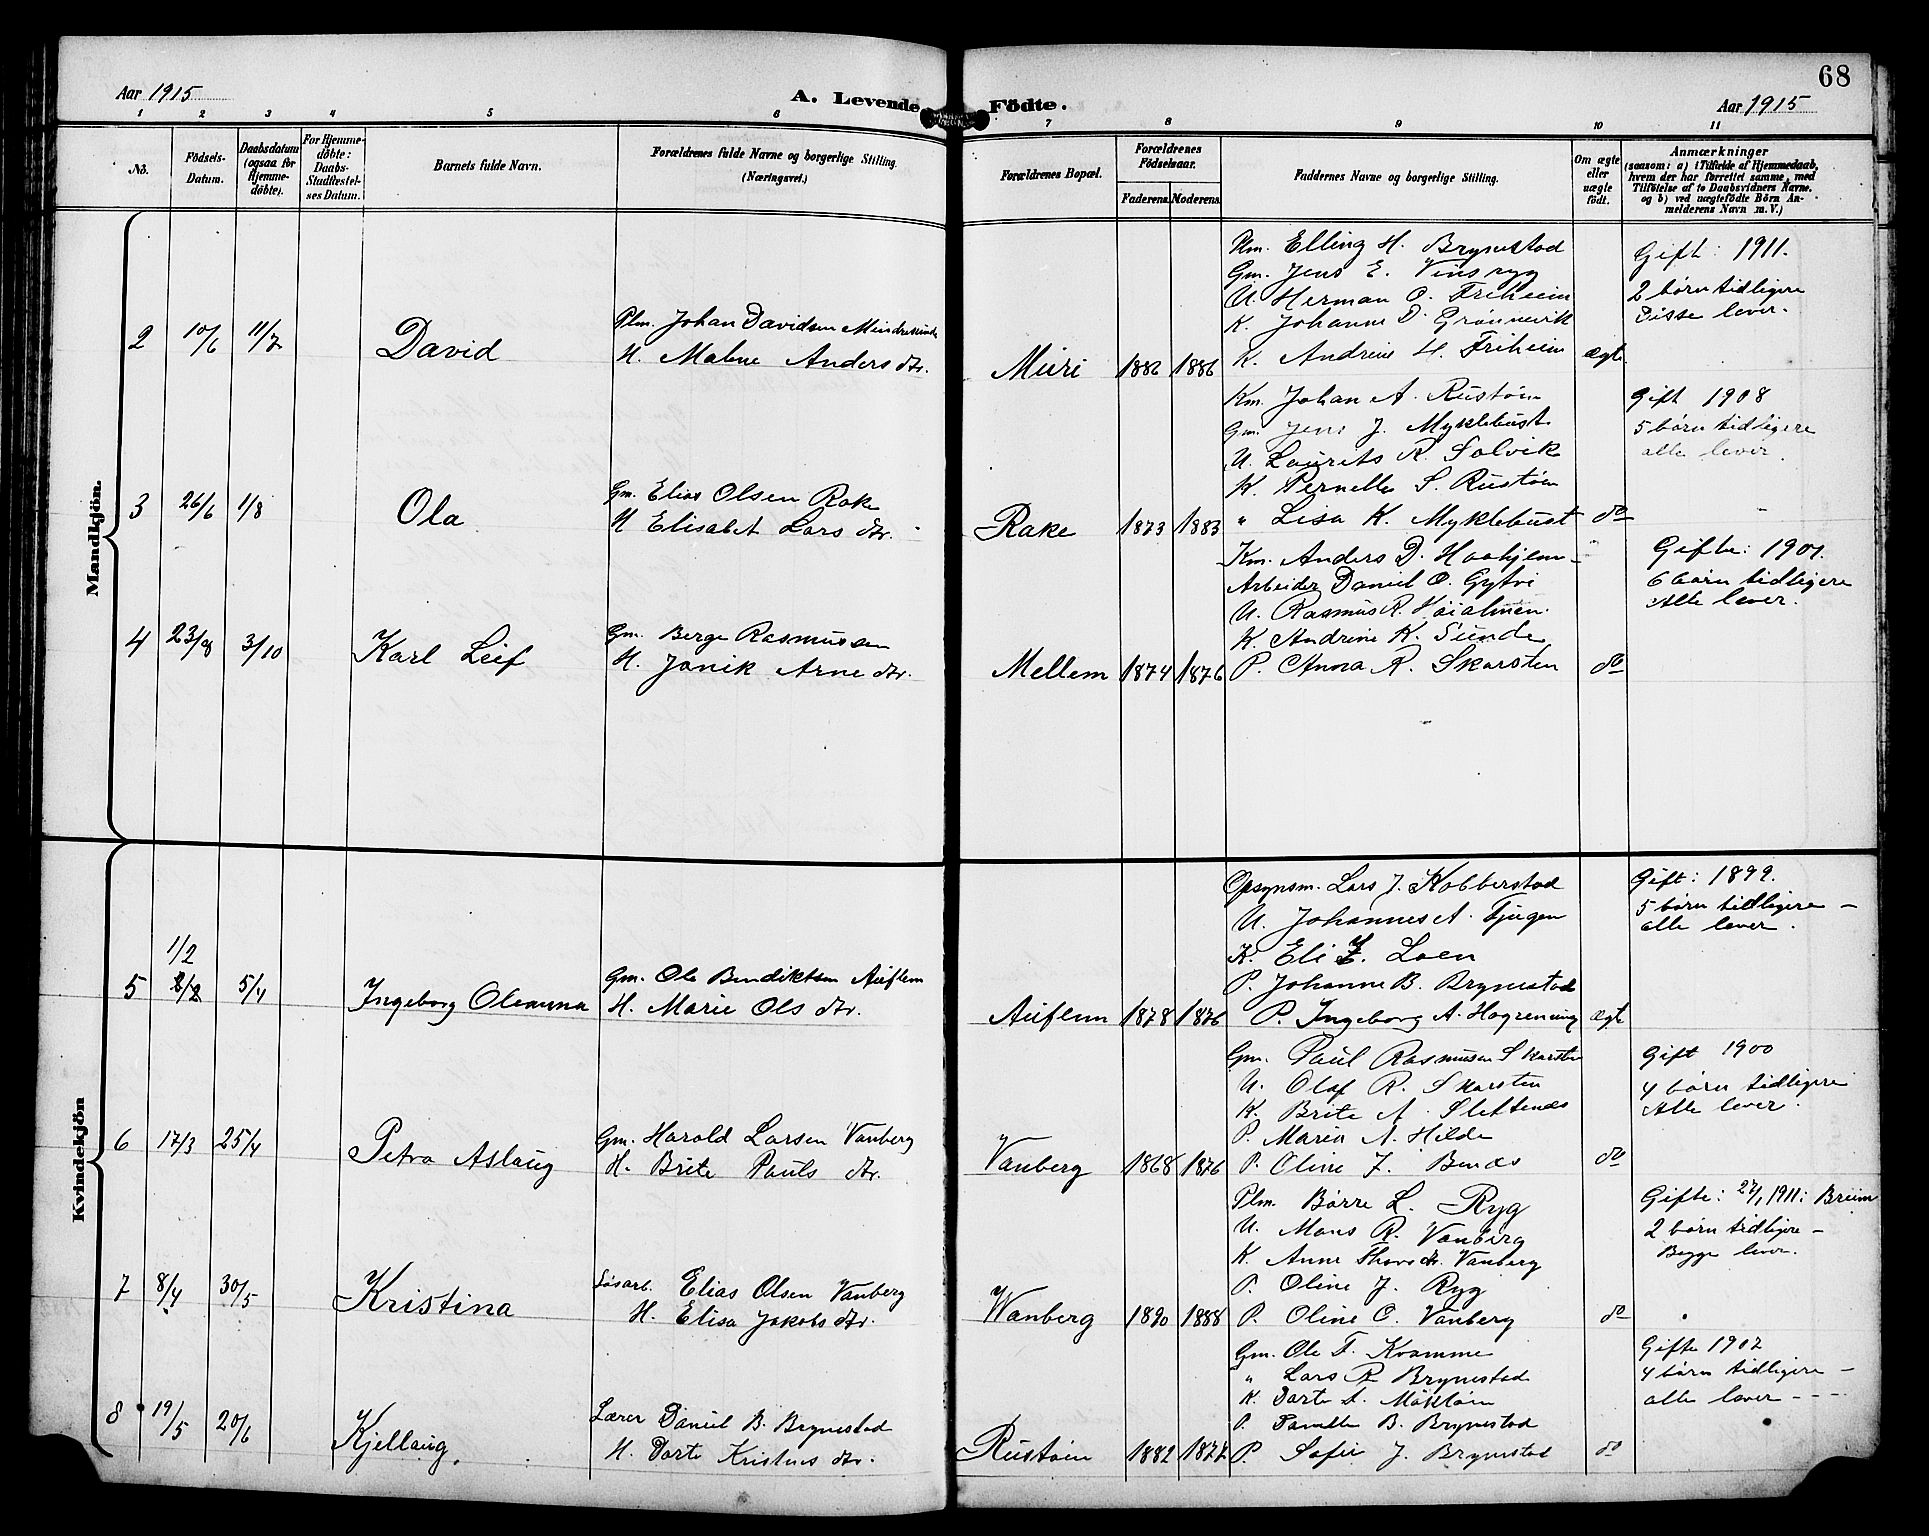 68
Aar 1915
A. Levende Födte.
Aar 1915
1 2 3 4 5 6 7 8 9 10 11
No.
Födsels-Datum.
Daabsdatum (ogsaa for Hjemme-döbte).
For Hjemme-döbte: Daabs-Stadfæstel-ses Datum.
Barnets fulde Navn.
Forældrenes fulde Navne og borgerlige Stilling. (Næringsvei.)
Forældrenes Bopæl.
Forældrenes Födselsaar.
Faderens. Moderens.
Faddernes Navne og borgerlige Stilling.
Om ægte eller uægte födt.
Anmærkninger
(saasom: a) i Tilfælde af Hjemmedaab, hvem der har forrettet samme, med Tilföielse af to Daabsvidners Navne, og b) ved uægtefödte Börn An-melderens Navn m. V.)
Mandkjön.
2 10/6 11/7 David
Plm. Johan Davidsen
H. Malene Anders dtr.
Muri 1886 1886
Elling H. Brynestad
Gm. Jens E. Vinsryg
U. Herman O. Friheim
K. Johanne D. Grønnevik
K. Andrine H. Friheim
ægte
Gift: 1911.
2 børn tidligere
Disse lever.
3 26/6 1/8 Ola
Gm. Elias Olsen Rake
H Elisabet Lars dtr.
Rake 1873 1883
Km. Johan A. Rustøen
Gm. Jens J. Myklebust
U. Laurits R. Solvik
K. Pernelle S. Rustøen
" Lisa K. Myklebust
do
Gift 1908
5 børn tidligere
alle lever.
4 23/8 3/10 Karl Leif
Gm. Berge Rasmussen
H. Janik Arne dtr.
Mellem 1874 1876
Km. Anders D. Haahjem
Arbeider Daniel O. Gytvi
U. Rasmus R. Høialmen.
K. Andrine K. Sunde
P. Anna R. Skarsten
do
Gifte: 1901.
6 børn tidligere
Alle lever.
Kvindekjön
5 1/2 5/4 Ingeborg Olemina
Gm. Ole Bendiktsen Auflem
H. Marie Ols dtr.
Auflem 1878 1876
Opsynsm. Lars J. Kobberstad
U. Johannes A. Tjugen
K. Eli Loen
P. Johanne B. Brynestad
P. Ingeborg A. Hogrenning
ægte
Gift: 1899.
5 børn tidligere –
alle lever.
6 17/3 25/4 Petra Aslaug
Gm. Harald Larsen Vanberg
H. Brite Pauls dtr.
Vanberg 1868 1876
Gm. Paul Rasmusen Skarsten
U. Olaf R. Skarsten
K. Brite A. Slettenes
P. Maria A. Hilde
P. Oline J. Benes
do
Gift 1900
4 børn tidligere
Alle lever.
7 8/4 30/5 Kristina
Løsarb. Elias Olsen Vanberg
H. Elisa Jakobs dtr.
Wanberg 1890 1888
Plm. Børre L. Ryg
U. Mons R. Vanberg
K. Anne Thors dtr. Vanberg
P. Oline J. Ryg
P. Oline O. Vanberg
do
Gifte: 27/1 1911: Breim
2 børn tidligere –
Begge lever.
8 19/5 20/6 Kjellaug.
Lærer Daniel B. Brynestad
H. Dorte Kristens dtr.
Rustøen 1882 1877
Gm. Ole F. Kvamme
" Lars R Brynestad
K Dorte A. Mökløen
P. B. Brynestad
P. Sofie J. Brynestad
do
Gifte 1907
4 børn tidligere –
alle lever – – –